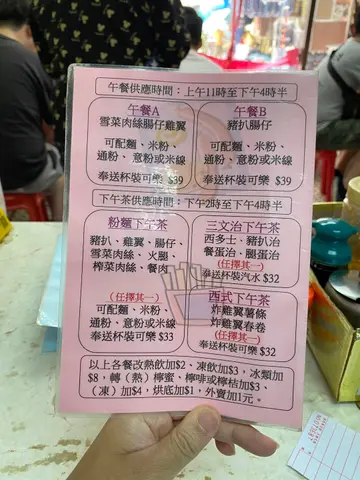 午餐供應時間：上午11時至下午4時半
午餐A
雪菜肉絲腸仔雞翼
可配麵、米粉、
通粉、意粉或米線
奉送杯裝可樂 $39
午餐B
豬扒腸仔
可配麵、米粉、
通粉、意粉或米線
奉送杯裝可樂 $39
下午茶供應時間：下午2時至下午4時半
粉麵下午茶
豬扒、雞翼、腸仔、
雪菜肉絲、火腿、
榨菜肉絲、餐肉
(任擇其一)
可配麵、米粉、
通粉、意粉或米線
奉送杯裝可樂 $33
三文治下午茶
西多士、豬扒治
餐蛋治、腿蛋治
(任擇其一)
奉送杯裝汽水 $32
西式下午茶
炸雞翼薯條
炸雞翼春卷
(任擇其一)
奉送杯裝可樂 $32
以上各餐改熱飲加$2、凍飲加$3，冰類加
$8，轉（熱）檸蜜、檸啡或檸桔加$3、
（凍）加$4，烘底加$1，外賣加1元。